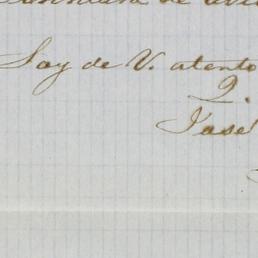 de
Soy de V. atento
Q.
José